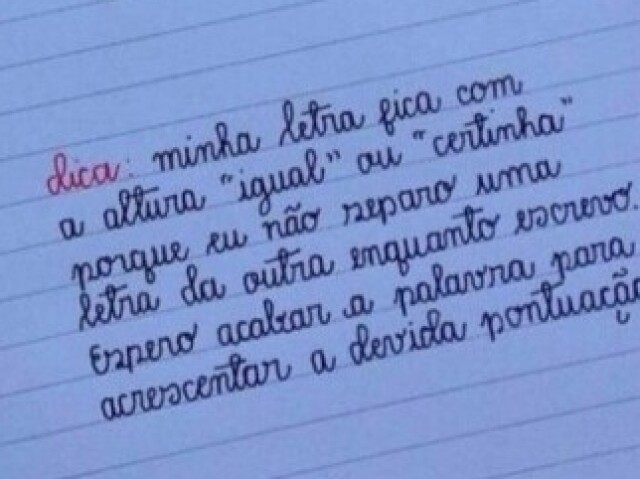 dica: minha letra fica com
a altura "igual" ou "certinha"
porque eu não separo uma
letra da outra enquanto escrevo.
Espero acabar a palavra para
acrescentar a devida pontuação